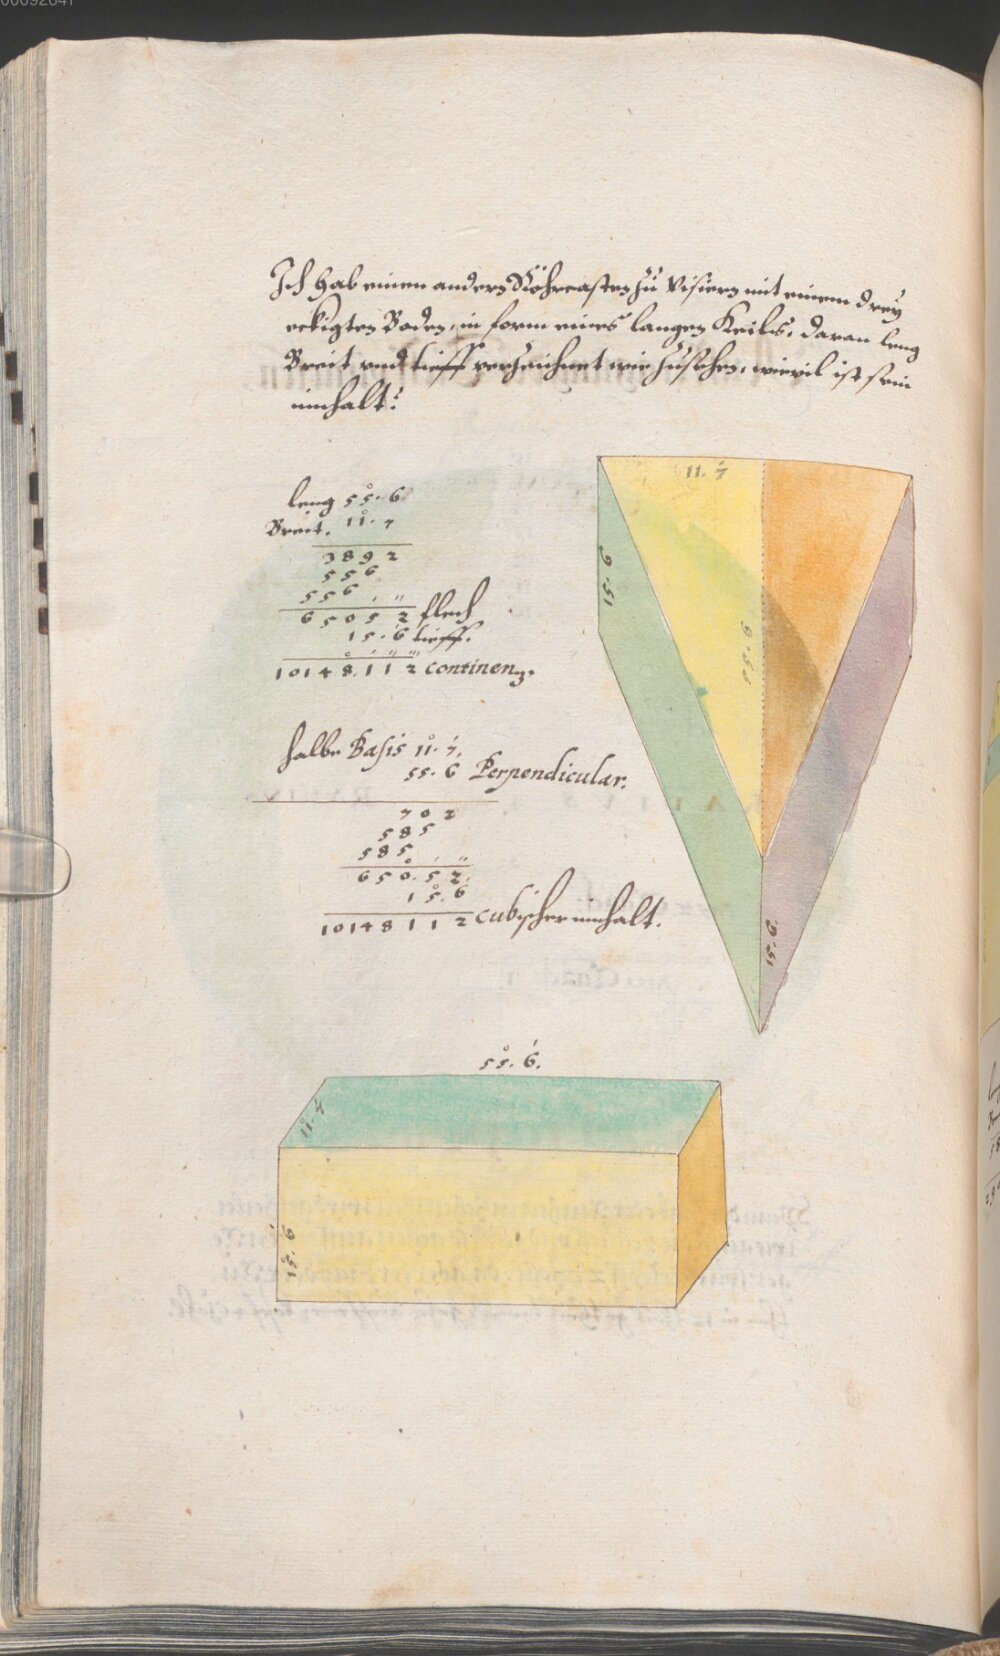 00092641
Ich hab einen andern Röhrcasten zu Visiern mit einem drey
eckigten Boden, in form eines langen Keils, daran leng
Breit und tieff verzeichnet wie zusehen, wievil ist sein
innhalt?
leng 55. 6
Breit. 11. 7
3892
556
556
65052 flech
15. 6 tieff.
10148.112 continenz.
halbe Basis 11. 7.
55. 6 Perpendicular.
702
585
585
650.52
15.6
10148112 cubischer innhalt.
11. 7
15. 6
55. 6
15. 6
55. 6.
11. 7
15. 6